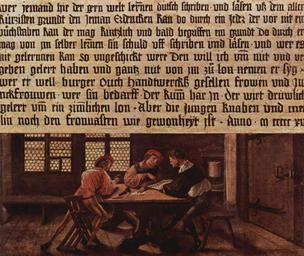 wer jemand hie der gern welt lernen dutsch schriben und läsen uß dem aller
kürtzisten grundt den jeman erdencken kan do durch ein jeder der vor nit ein
büchstaben kan der mag kürtzlich und bald begriffen ein grundt do durch er
mag von jm selbs lernen sin schuld uff schriben und läsen und wer es
nit gelernen kan so ungeschickt were den will ich um nüt und ver
geben gelert haben und gantz nüt von jm zü lon nemen er syg
wer er well burger ouch handtwercks gesellen frowen und ju
nckfrowen wer sin bedarff der kum har jn der wirt drüwlich
gelert um ein zimlichen lon · aber die jungen knaben und meit
lin noch den fronvasten wie gewonheyt ist · Anno · m ccccc xvi